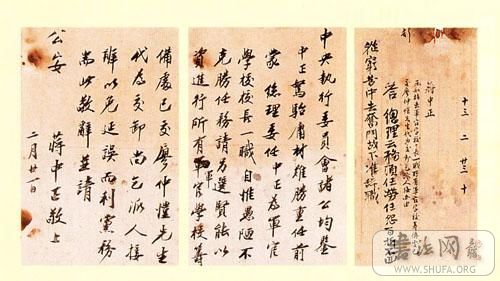 十三 二 廿三 十
蔣中正
答 總理云務須任勞任怨百折不回
從窮苦中去奮鬥故不准辭職
中央執行委員會諸公均鑒
中正駑駘庸材難勝重任前
蒙總理委任中正為軍官
學校校長一職自惟愚陋不
克勝任務請另選賢能以
資進行所有軍官學校籌
備處已交廖仲愷先生
代為交卸尚乞派人接
辦以免延誤而利黨務
耑此敬辭並請
公安
蔣中正敬上
二月廿一日
書法网
WWW.SHUFA.ORG